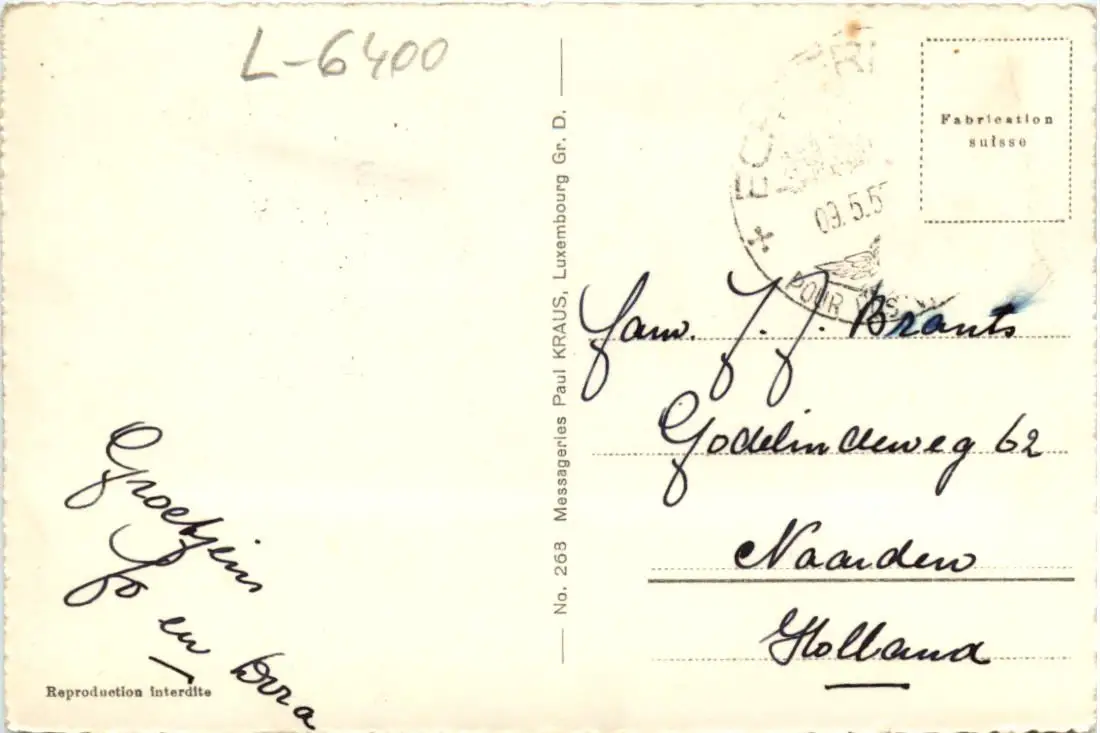 L-6400
Groetjes
Jo en Dora
Reproduction interdite
No. 268 Messageries Paul KRAUS, Luxembourg Gr. D.
09.5.5
POUR
Fabrication
suisse
Fam. J. J. Brants
Godelindeweg 62
Naarden
Holland